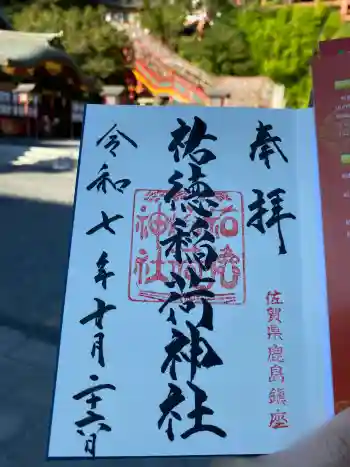 奉拝
佐賀県鹿島鎮座
祐徳稲荷神社
祐徳稲荷神社
令和七年十月二十六日